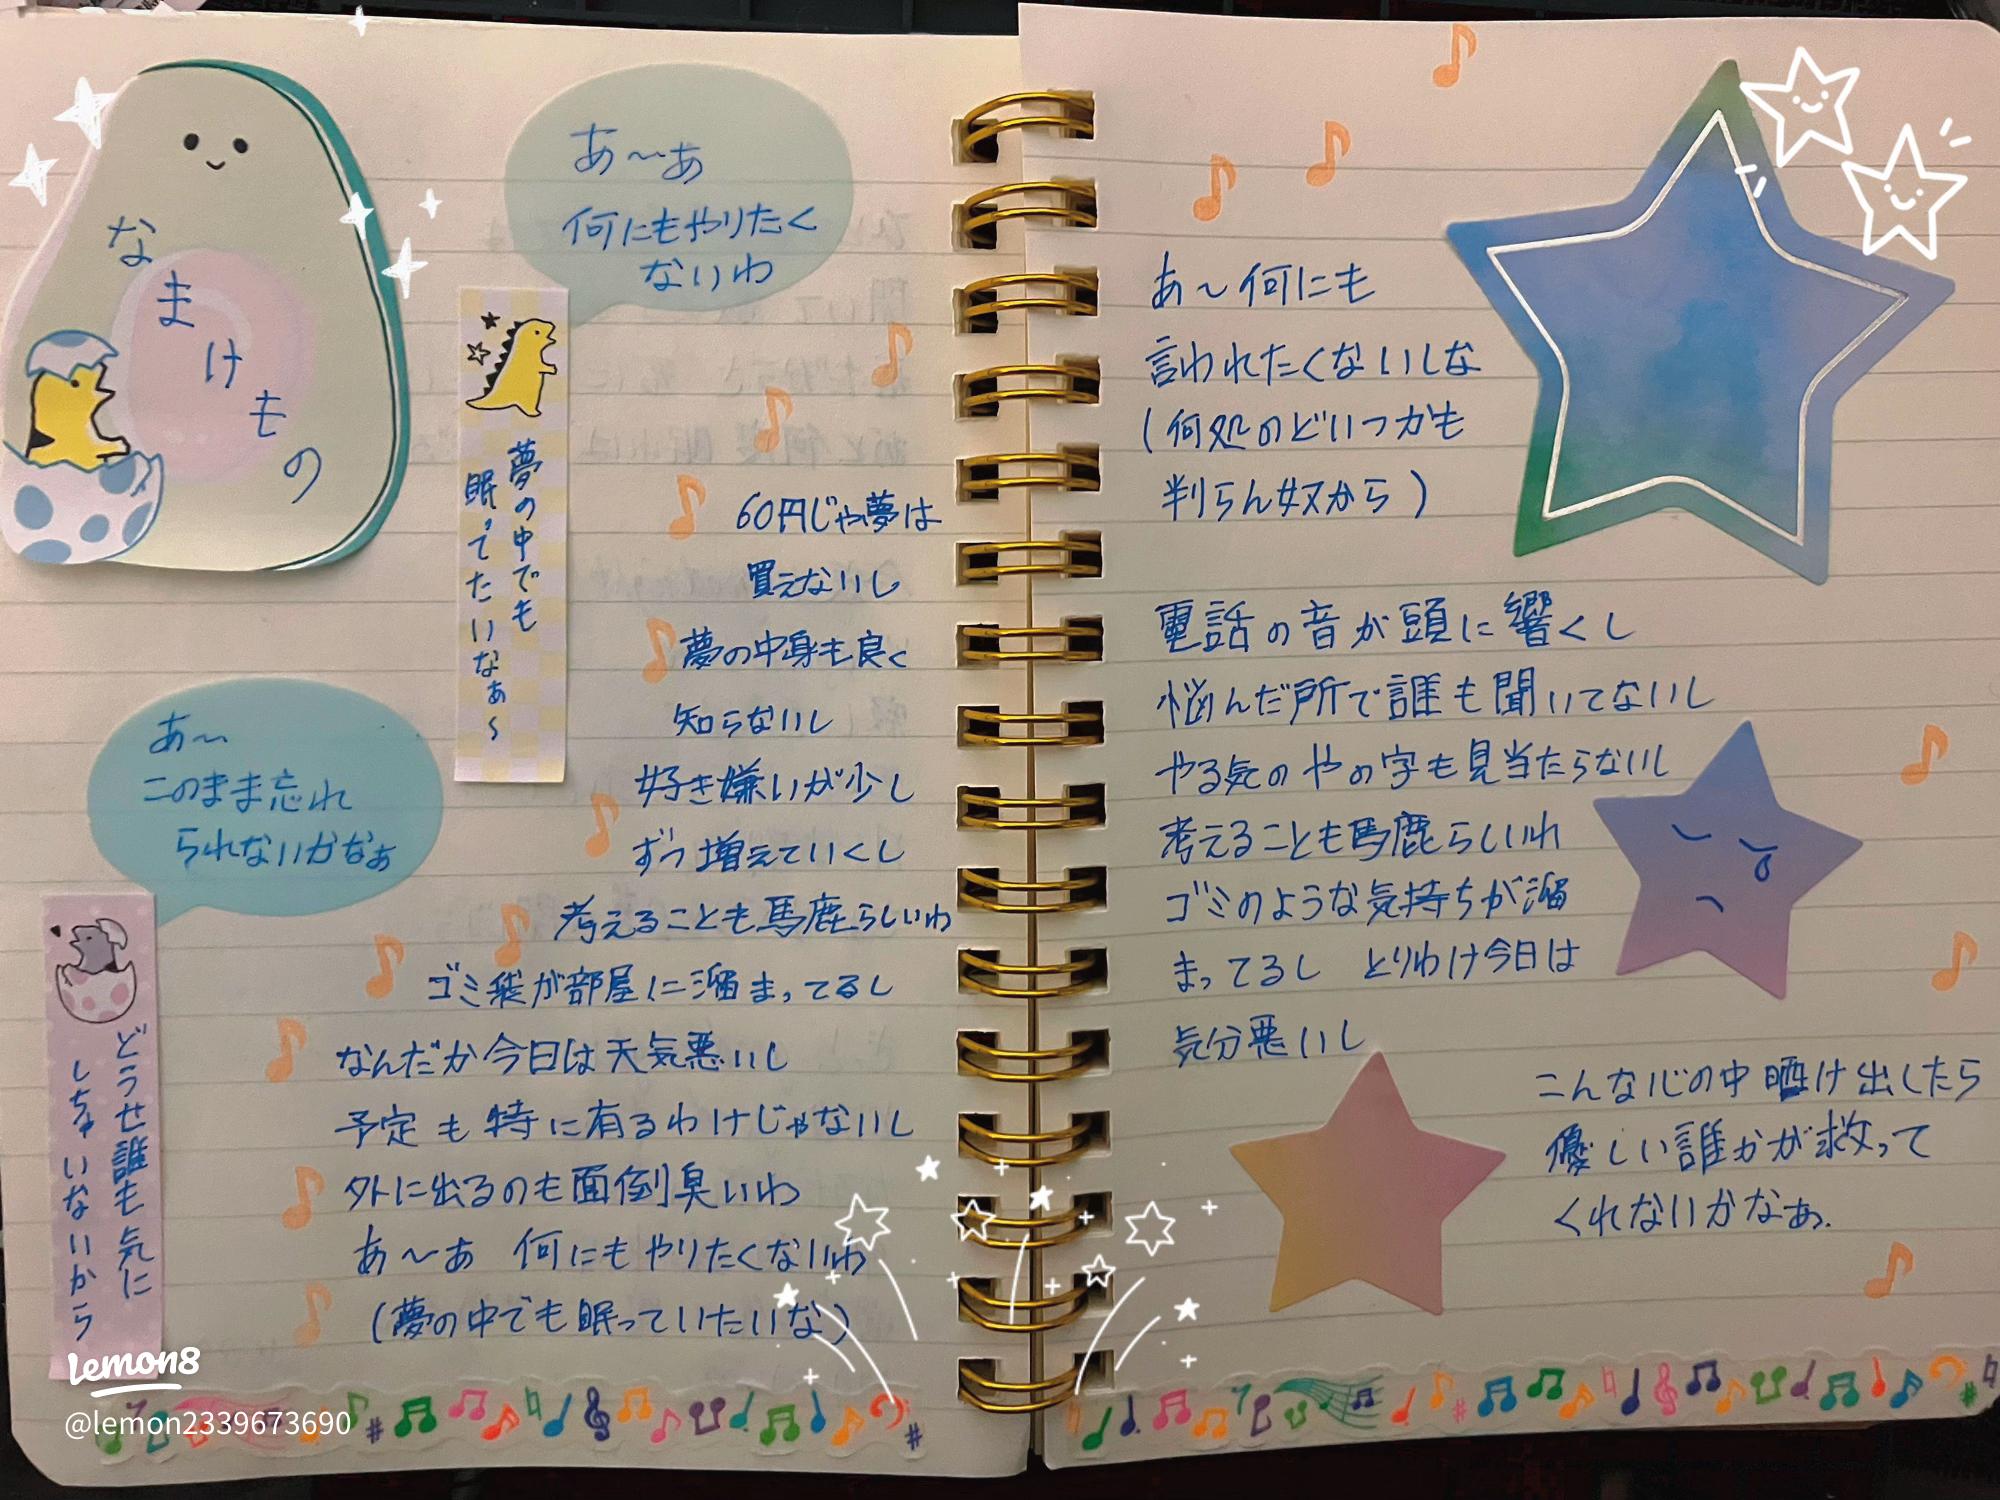 なまけもの
あ〜あ
何にもやりたく
ないわ
夢の中でも
眠ってたいなぁ〜
あ〜
このまま忘れ
られないかなぁ
どうせ誰も気に
しちゃいないから
60円じゃ夢は
買えないし
夢の中身も良く
知らないし
好き嫌いが少し
ずつ増えていくし
考えることも馬鹿らしいわ
ゴミ袋が部屋に溜まってるし
なんだか今日は天気悪いし
予定も特に有るわけじゃないし
外に出るのも面倒臭いわ
あ〜あ 何にもやりたくないわ
(夢の中でも眠っていたいな)
あ〜何にも
言われたくないしな
(何処のどいつかも
判らん奴から)
電話の音が頭に響くし
悩んだ所で誰も聞いてないし
やる気のやの字も見当たらないし
考えることも馬鹿らしいわ
ゴミのような気持ちが溜
まってるし とりわけ今日は
気分悪いし
こんな心の中曝け出したら
優しい誰かが救って
くれないかなぁ.
Lemon8
@lemon2339673690